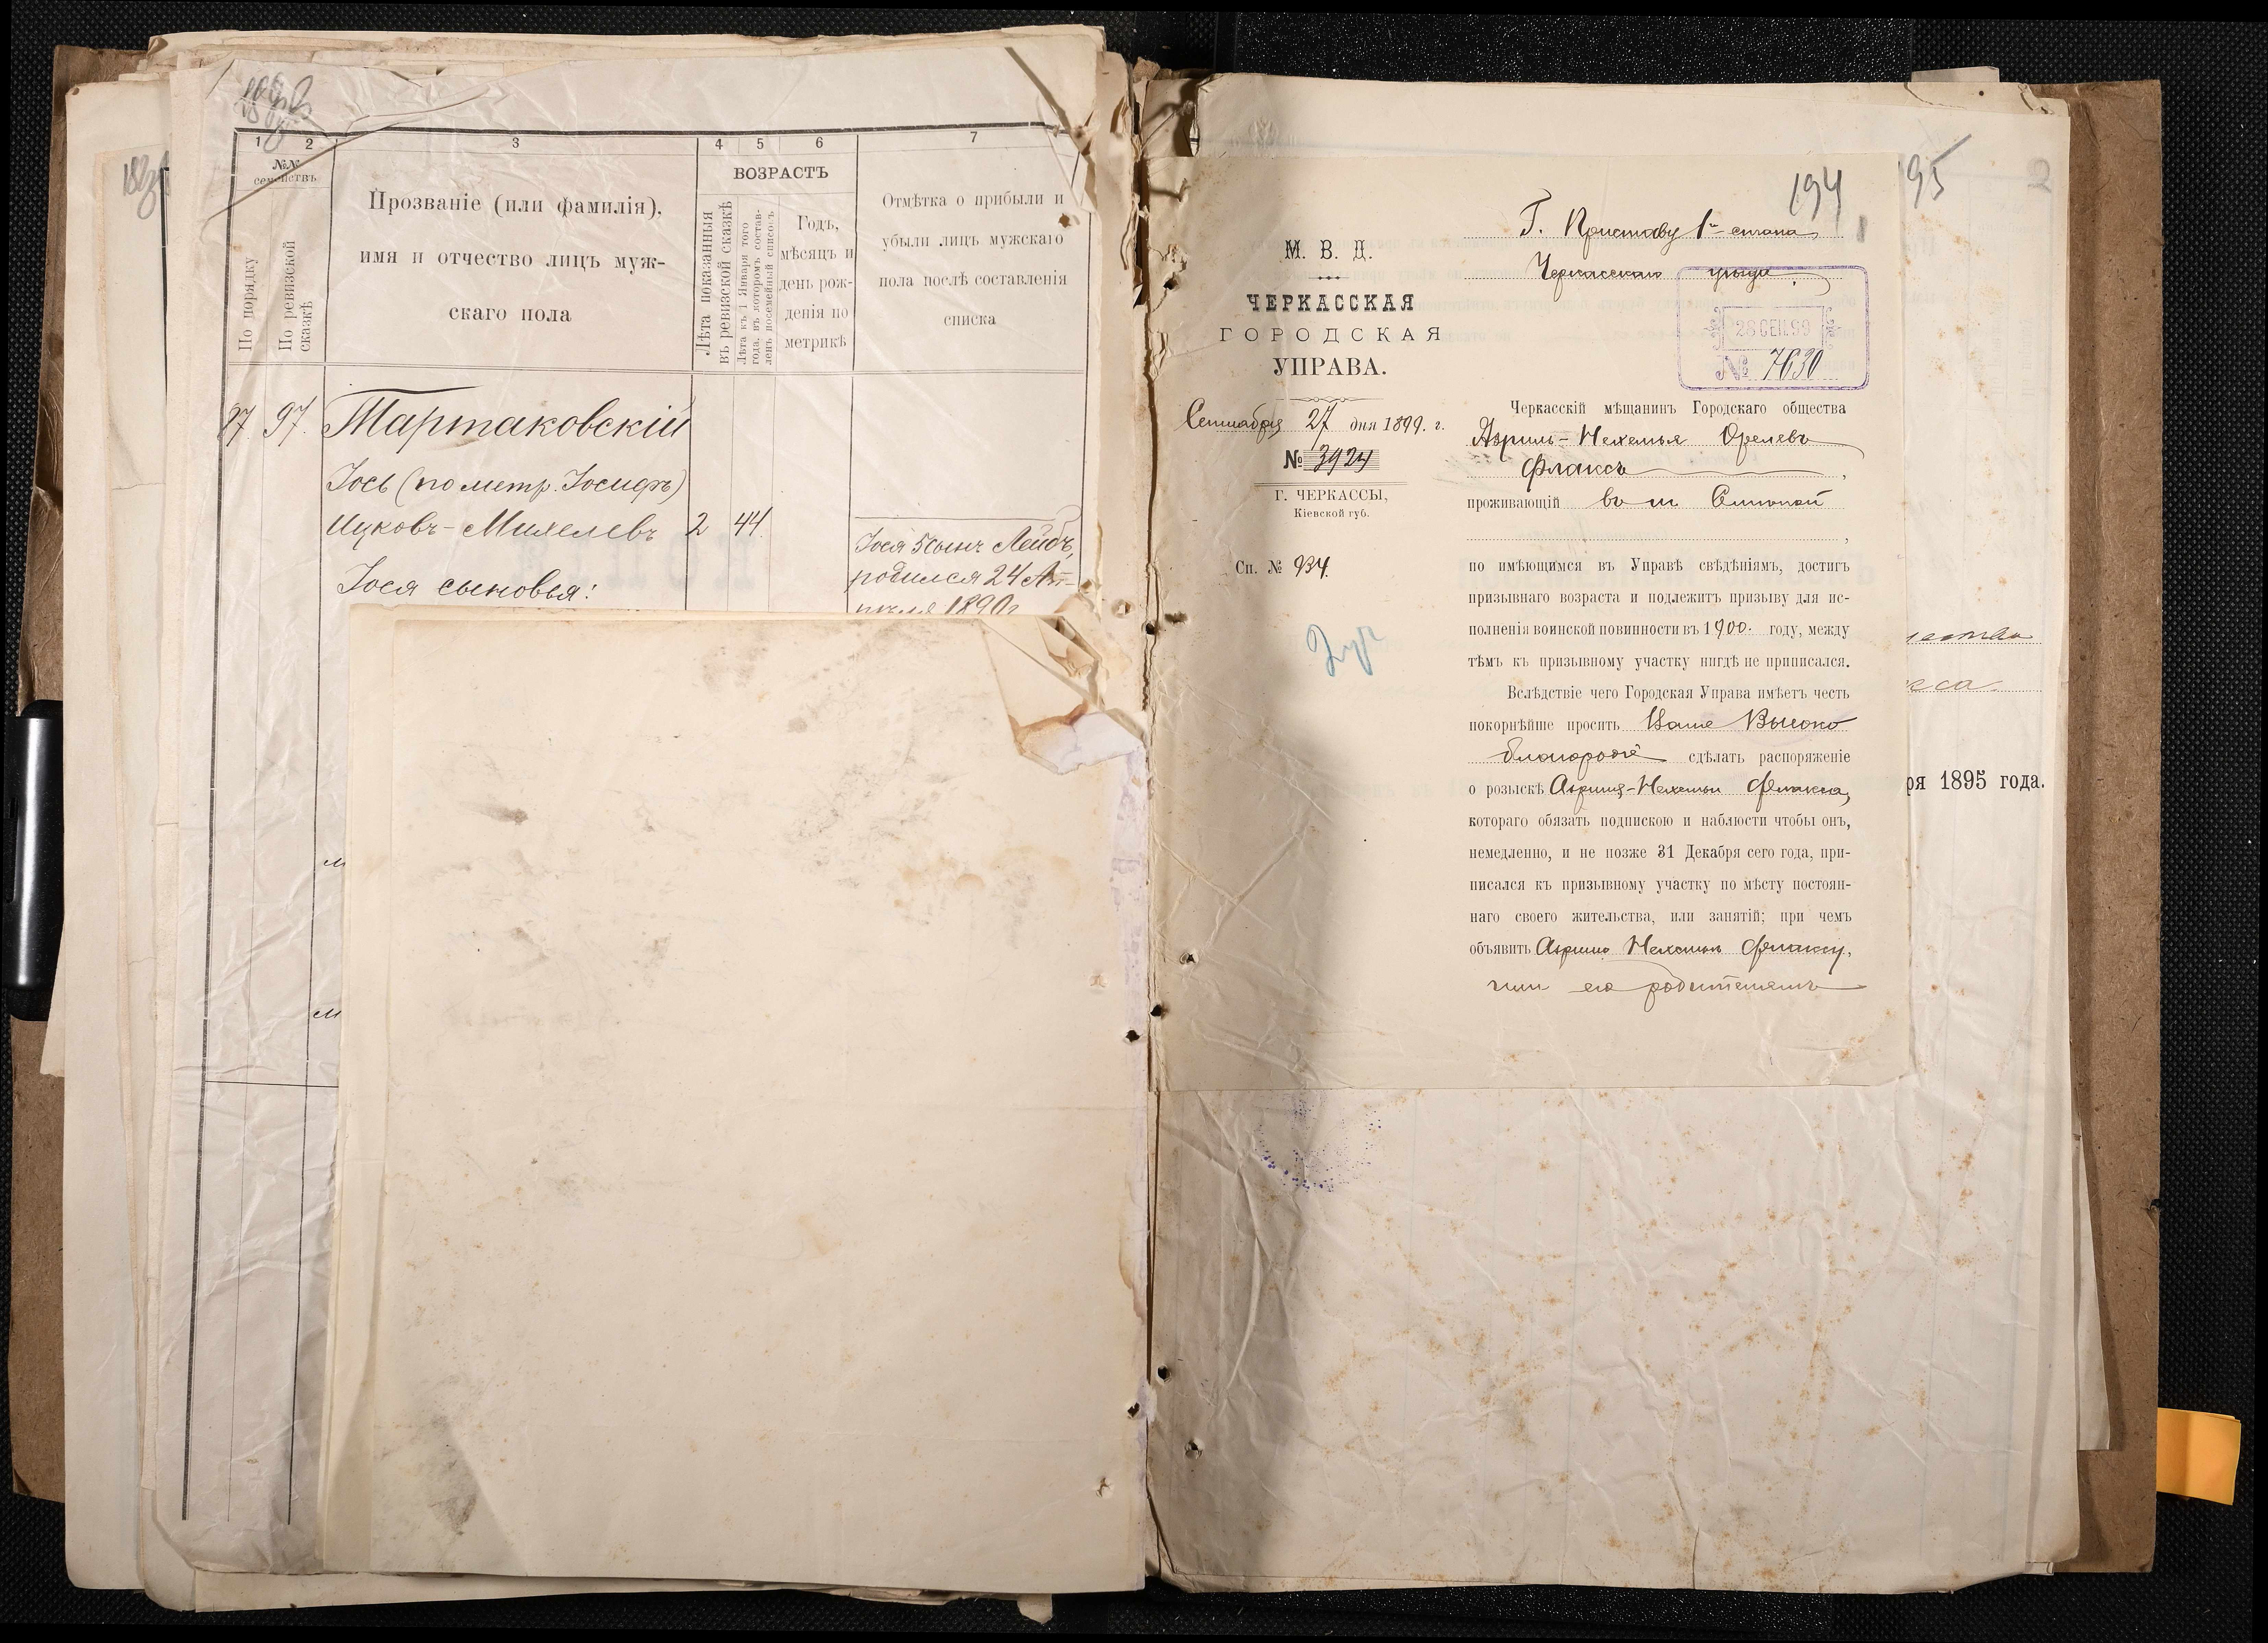 1
2
3
4
5
6
7
№№
семействъ
По порядку
По ревизской
сказкѣ
Прозваніе (или фамилія),
имя и отчество лицъ муж-
скаго пола
ВОЗРАСТЪ
Лѣта показанныя
въ ревизской сказкѣ
Лѣта къ 1 Января того
года, въ которомъ состав-
ленъ посемейный списокъ
Годъ,
мѣсяцъ и
день рож-
денія по
метрикѣ
Отмѣтка о прибыли и
убыли лицъ мужскаго
пола послѣ составленія
списка
97. Тартаковскій
Іось (по метр. Іосифъ)
Ицковъ-Михелевъ 2 44.
Іося сыновья:
Іося 5 сынъ Лейбъ,
родился 24 Ап-
рѣля 1890 г
194
Г. Приставу 1го стана
Черкасскаго уѣзда.
М. В. Д.
ЧЕРКАССКАЯ
ГОРОДСКАЯ
УПРАВА.
28 СЕН. 99
№ 7630
Сентября 27 дня 1899. г.
№ 3924
Г. ЧЕРКАССЫ,
Кіевской губ.
Сп. № 934.
Черкасскій мѣщанинъ Городскаго общества
Азриль-Нехемья
Флаксъ,
проживающій въ м
по имѣющимся въ Управѣ свѣдѣніямъ, достигъ
призывнаго возраста и подлежитъ призыву для ис-
полненія воинской повинности въ 1900. году, между
тѣмъ къ призывному участку нигдѣ не приписался.
Вслѣдствіе чего Городская Управа имѣетъ честь
покорнѣйше просить Ваше Высоко
благородіе сдѣлать распоряженіе
о розыскѣ Азриля-Нехемьи Флакса,
котораго обязать подпискою и наблюсти чтобы онъ,
немедленно, и не позже 31 Декабря сего года, при-
писался къ призывному участку по мѣсту постоян-
наго своего жительства, или занятій; при чемъ
объявить Азрилю Нехемьи Флаксу,
или его родителямъ
95
2
кса.
ря 1895 года.